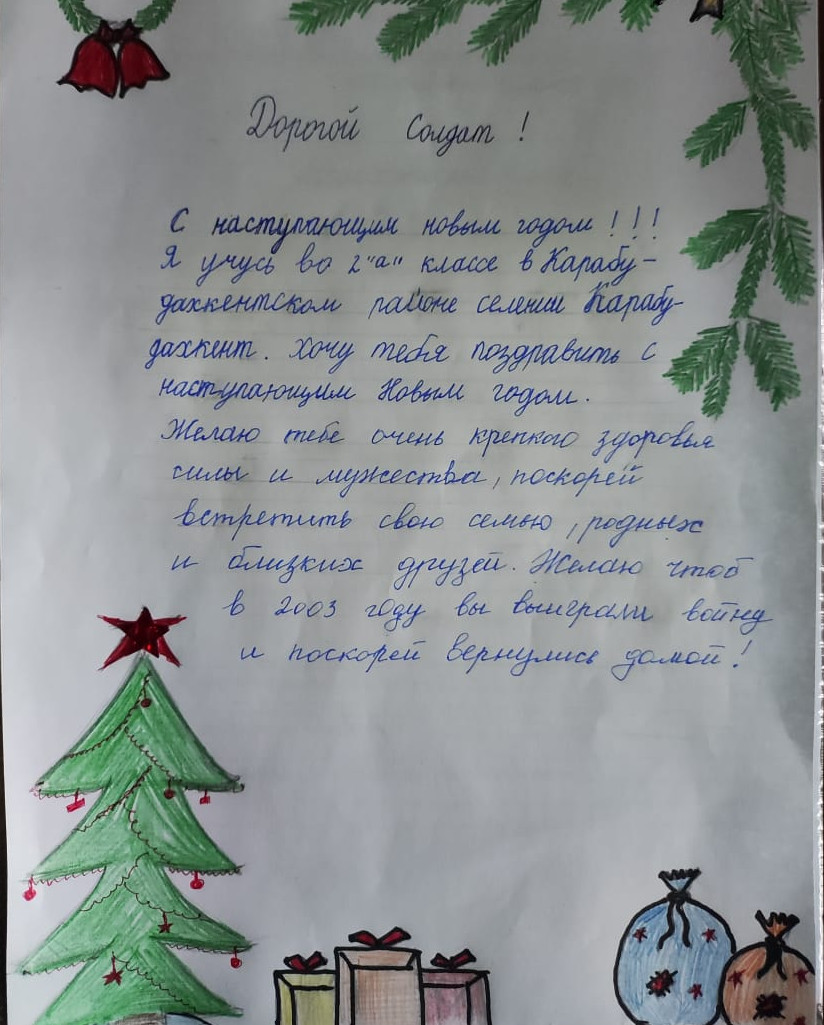 Дорогой Солдат !
С наступающим новым годом ! ! !
Я учусь во 2"а" классе в Карабу-
дахкентском районе селении Карабу-
дахкент. Хочу тебя поздравить с
наступающим Новым годом.
Желаю тебе очень крепкого здоровья
силы и мужества, поскорей
встретить свою семью, родных
и близких друзей. Желаю чтоб
в 2003 году вы выиграли войну
и поскорей вернулись домой!